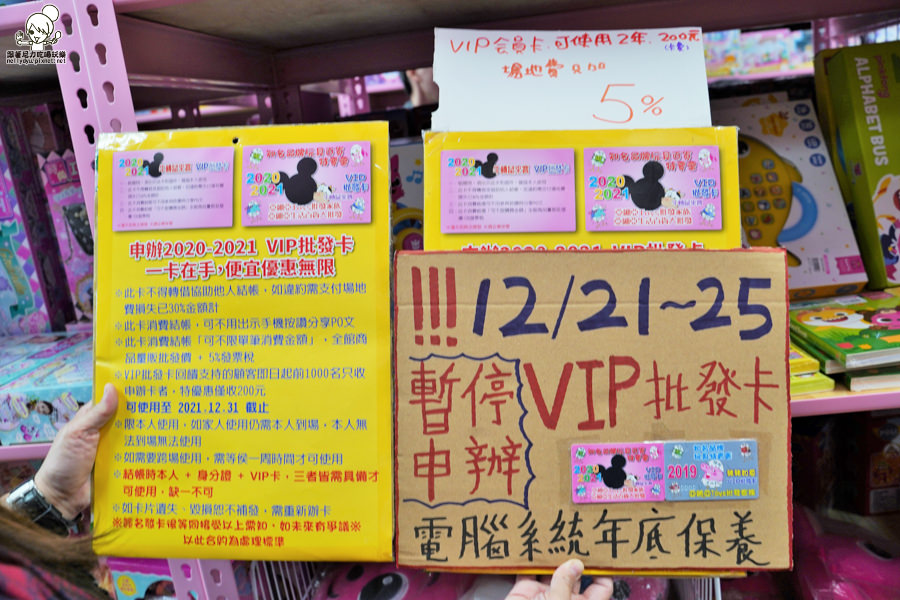 跟著尼力吃喝玩樂
nellydyu.pixnet.net
VIP會員卡.可使用2年.200元
(卡費)
場地費只加
5%
2020
2021
VIP批發卡
2020
2021
VIP
批發卡
申辦2020-2021 VIP批發卡
一卡在手,便宜優惠無限
※此卡不得轉借協助他人結帳,如違約需支付場地
費損失已30%金額計
※此卡消費結帳,可不用出示手機按讚分享PO文
※此卡消費結帳「可不限單筆消費金額」、全館商
品量販批發價 + 5%發票稅
※VIP批發卡回饋支持的顧客即日起前1000名只收
申辦卡者,特優惠僅收200元
可使用至 2021.12.31 截止
※限本人使用,如家人使用仍需本人到場,本人無
法到場無法使用
※如需要跨場使用,需等侯一周時間才可使用
※結帳時本人 + 身分證 + VIP卡,三者皆需具備才
可使用,缺一不可
※如卡片遺失、毀損恕不補發,需重新辦卡
※簽名發卡後等同接受以上需知,如未來有爭議※
以此合約為處理標準
!!! 12/21~25
暫停
申辦
VIP批發卡
2020
2021
VIP
2019
電腦系統年底保養
ALPHABET BUS